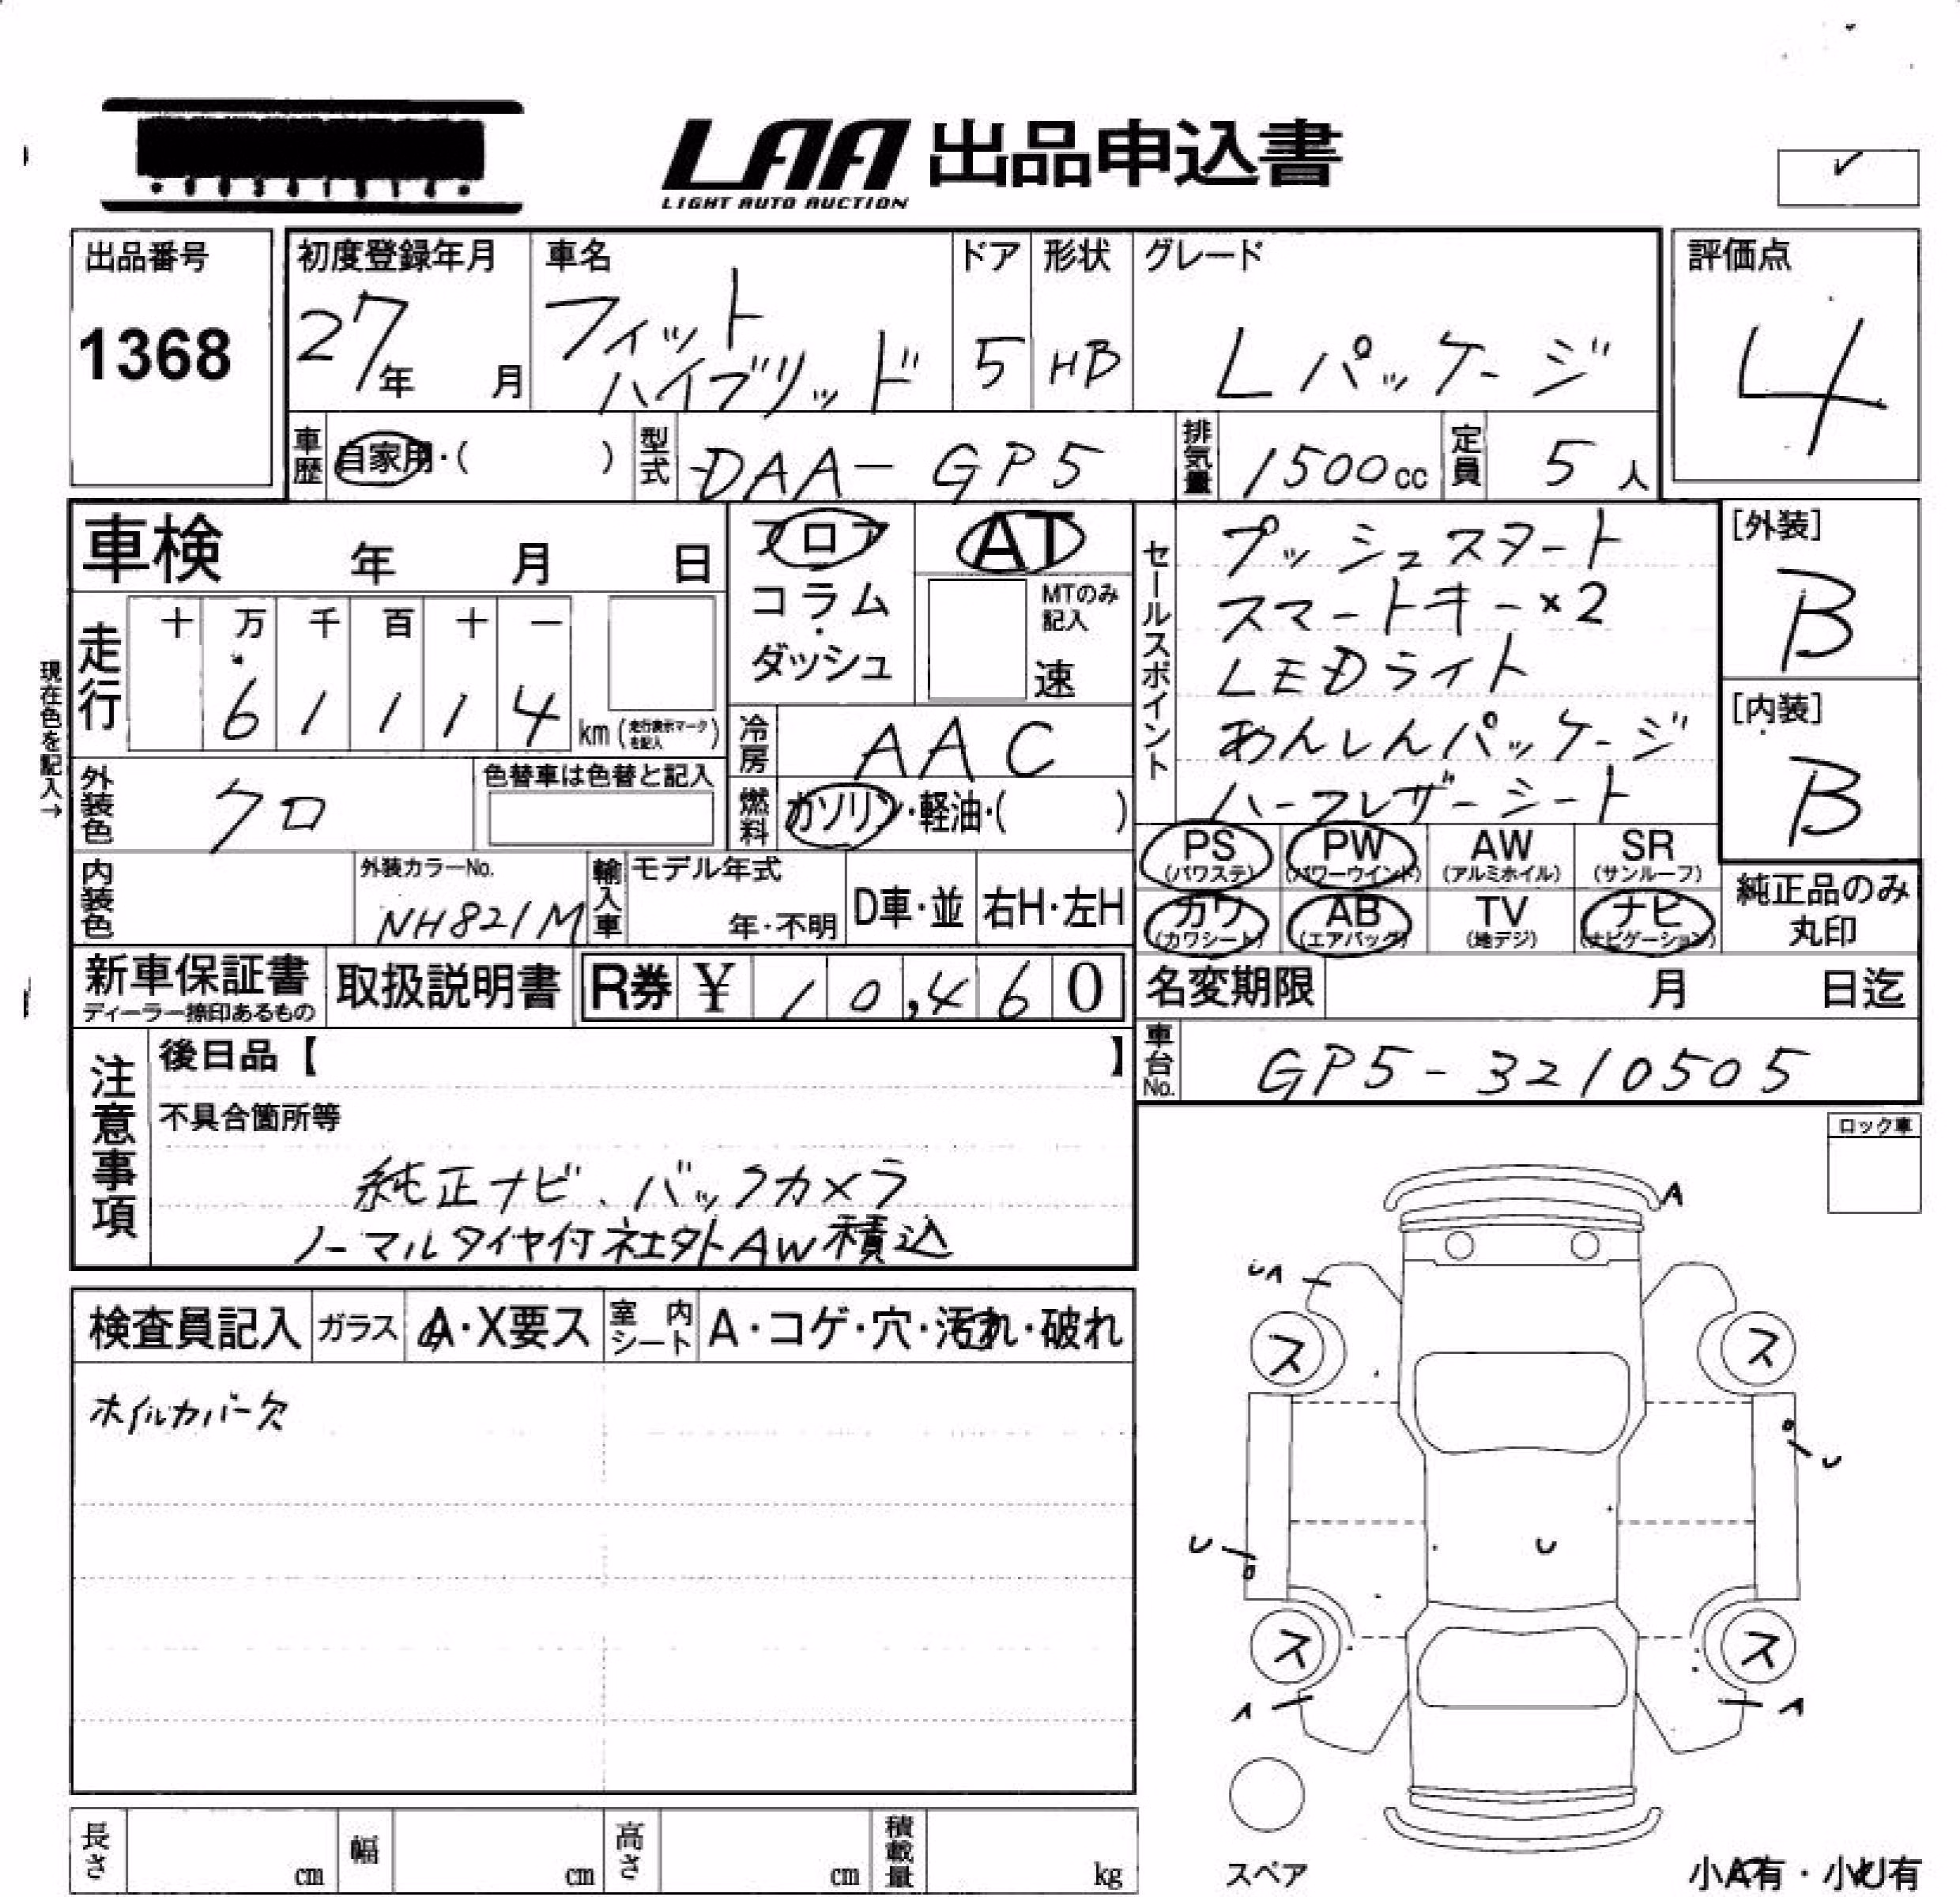 LAA 出品申込書
LIGHT AUTO AUCTION
✓
出品番号
1368
初度登録年月
27年 月
車名
フィット
ハイブリッド
ドア
5
形状
HB
グレード
Lパッケージ
評価点
4
車歴 自家用・( )
型式 DAA-GP5
排気量 1500cc
定員 5人
車検 年 月 日
フロア
コラム
・
ダッシュ
AT
MTのみ
記入
速
セールスポイント
プッシュスタート
スマートキー×2
LEDライト
あんしんパッケージ
ハーフレザーシート
[外装]
B
[内装]
B
現在色を記入→
走行
十 万 千 百 十 一
6 1 1 1 4 km(走行表示マークを記入)
冷房 AAC
燃料 ガソリン・軽油・( )
外装色 クロ
色替車は色替と記入
内装色
外装カラーNo.
NH821M
輸入車
モデル年式
年・不明
D車・並
右H・左H
PS (パワステ)
PW (パワーウインド)
AW (アルミホイル)
SR (サンルーフ)
カワ (カワシート)
AB (エアバッグ)
TV (地デジ)
ナビ (ナビゲーション)
純正品のみ
丸印
新車保証書
ディーラー捺印あるもの
取扱説明書
R券 ¥ 10,460
名変期限 月 日迄
車台No. GP5-3210505
注意事項
後日品【 】
不具合箇所等
純正ナビ、バックカメラ
ノーマルタイヤ付社外AW積込
ロック車
検査員記入 ガラス A・X要ス 室内シート A・コゲ・穴・汚れ・破れ
ホイルカバー欠
A
UA
ス ス
U
U U
ス ス
A A
スペア
小A有・小U有
長さ cm
幅 cm
高さ cm
積載量 kg